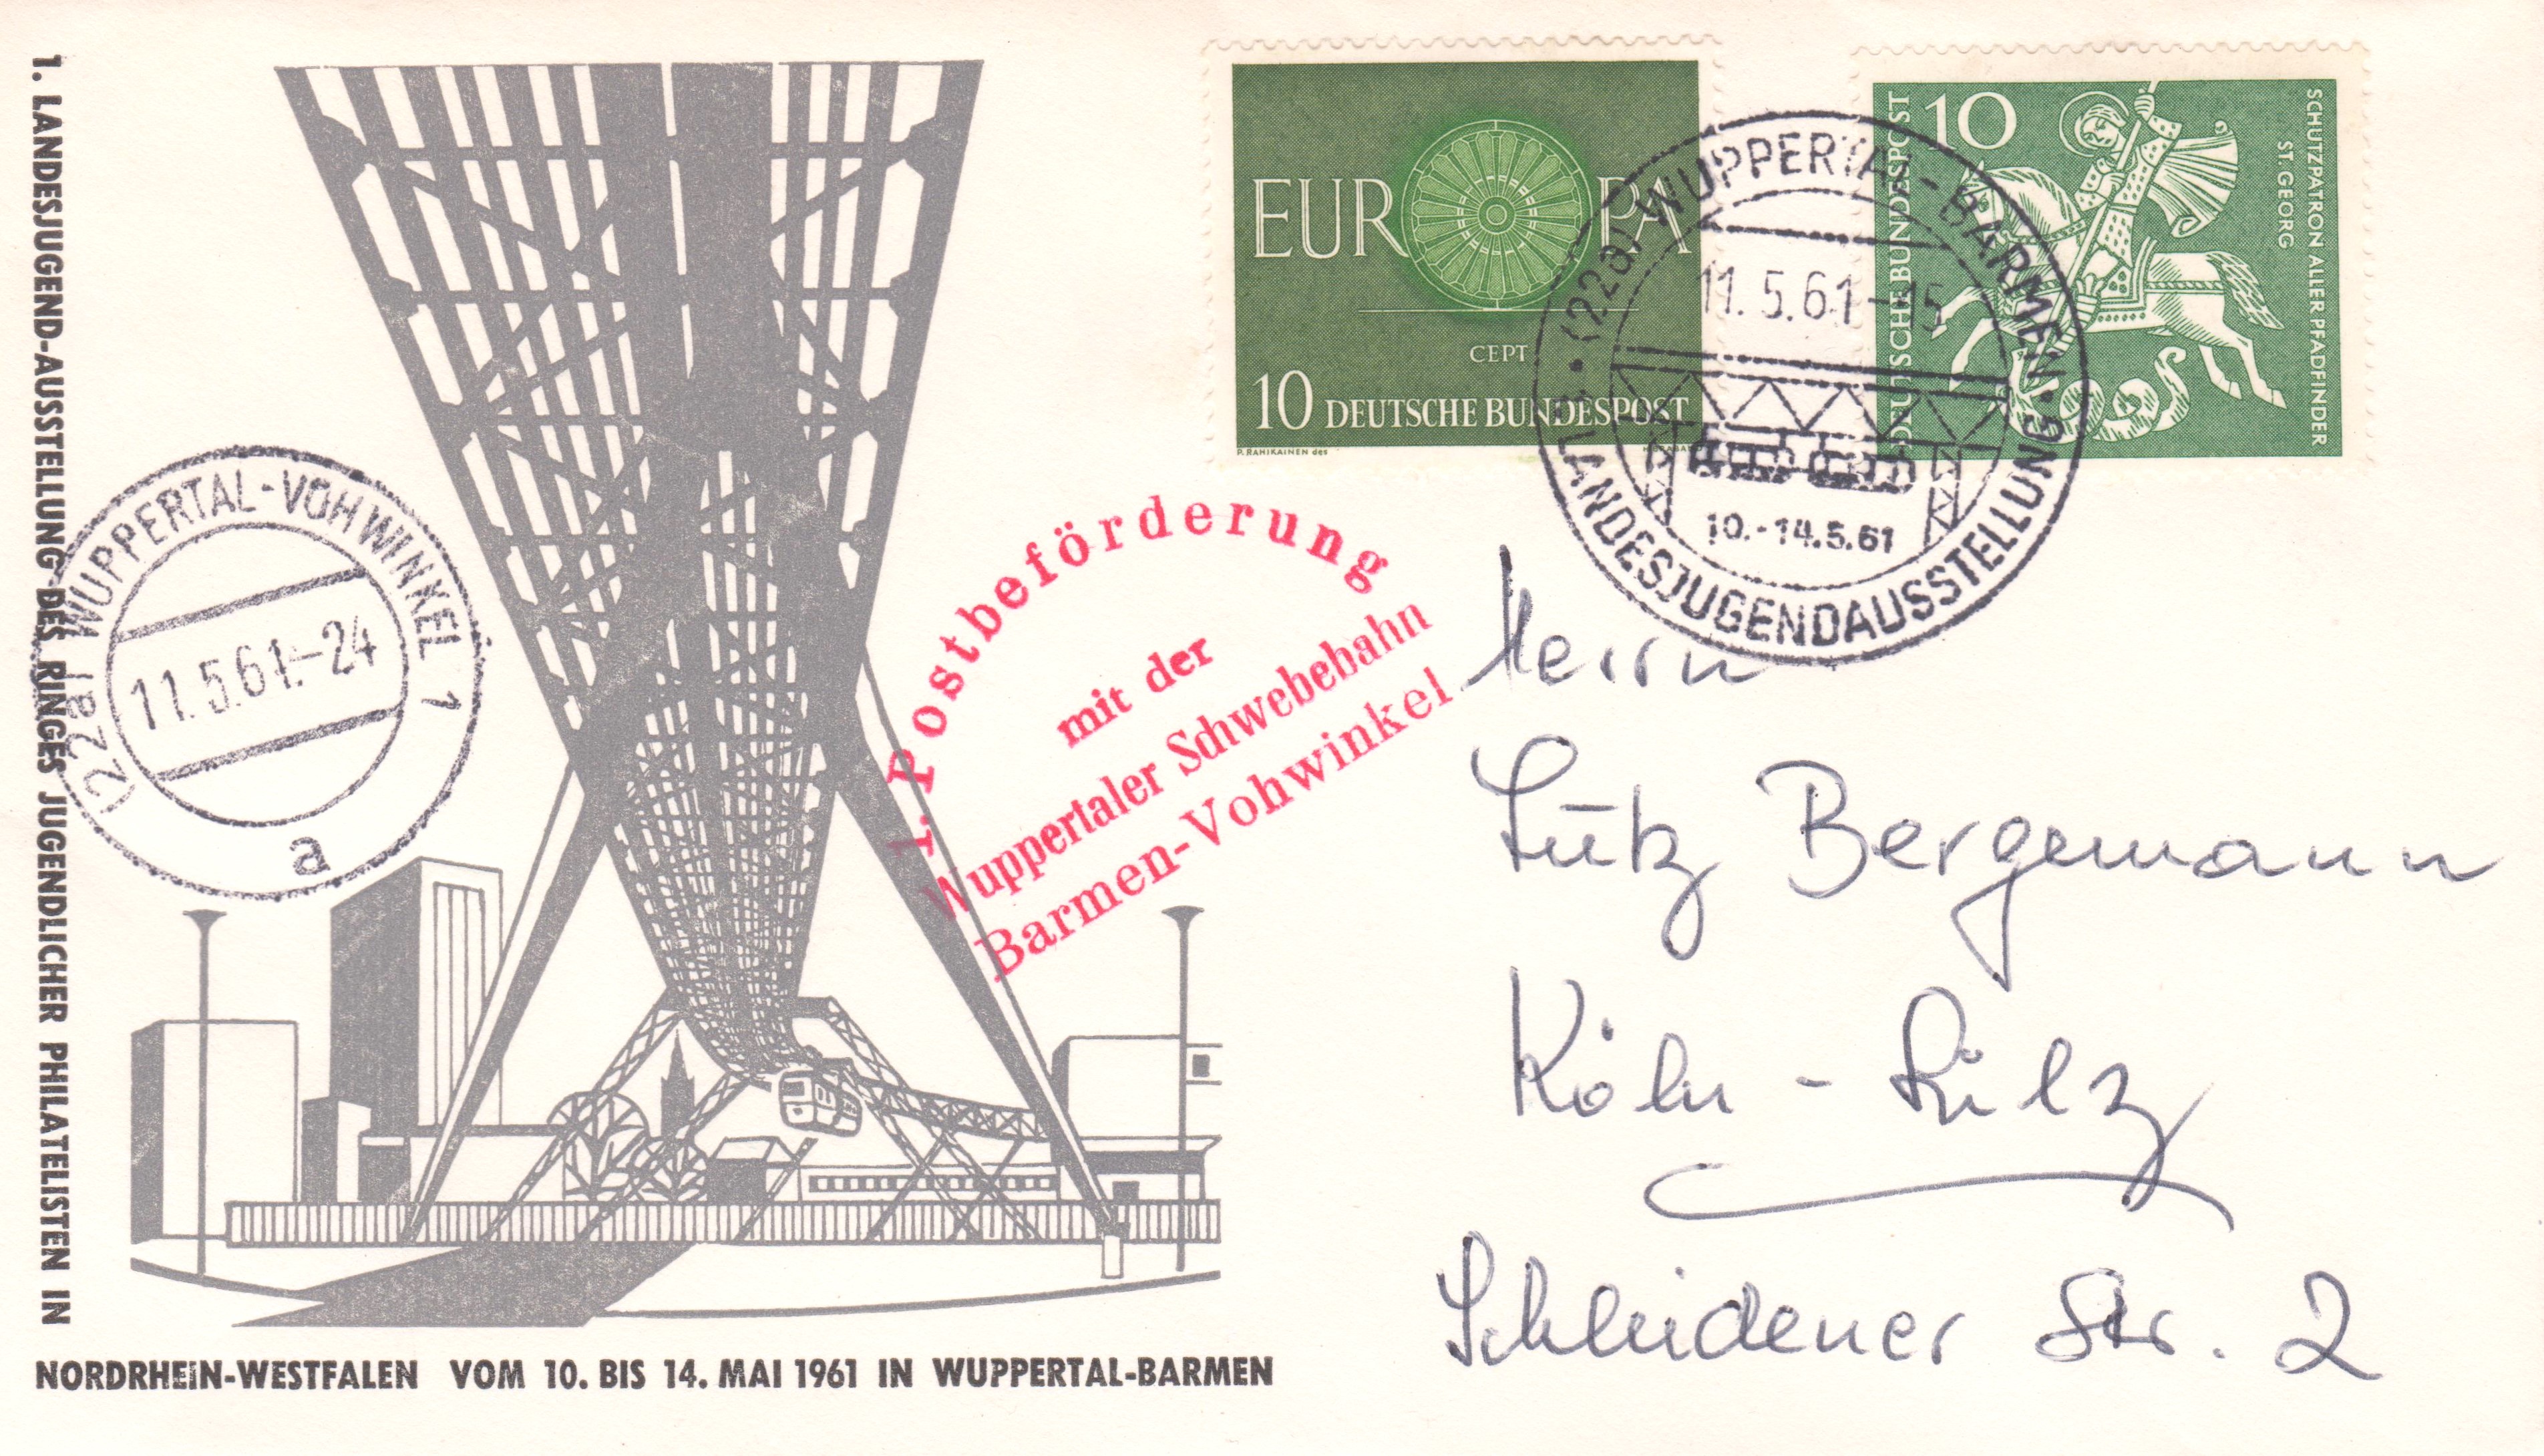 1. LANDESJUGEND-AUSSTELLUNG DES RINGES JUGENDLICHER PHILATELISTEN IN
NORDRHEIN-WESTFALEN VOM 10. BIS 14. MAI 1961 IN WUPPERTAL-BARMEN
(22a) WUPPERTAL-VOHWINKEL 1
11.5.61.-24
a
1. Postbeförderung
mit der
Wuppertaler Schwebebahn
Barmen-Vohwinkel
EUROPA
CEPT
10 DEUTSCHE BUNDESPOST
P. RAHIKAINEN des
(22a) WUPPERTAL-BARMEN
11.5.61-15
10.-14.5.61
LANDESJUGENDAUSSTELLUNG
DEUTSCHE BUNDESPOST
10
SCHUTZPATRON ALLER PFADFINDER
ST. GEORG
Herrn
Lutz Bergemann
Köln - Sülz
Schleidener Str. 2